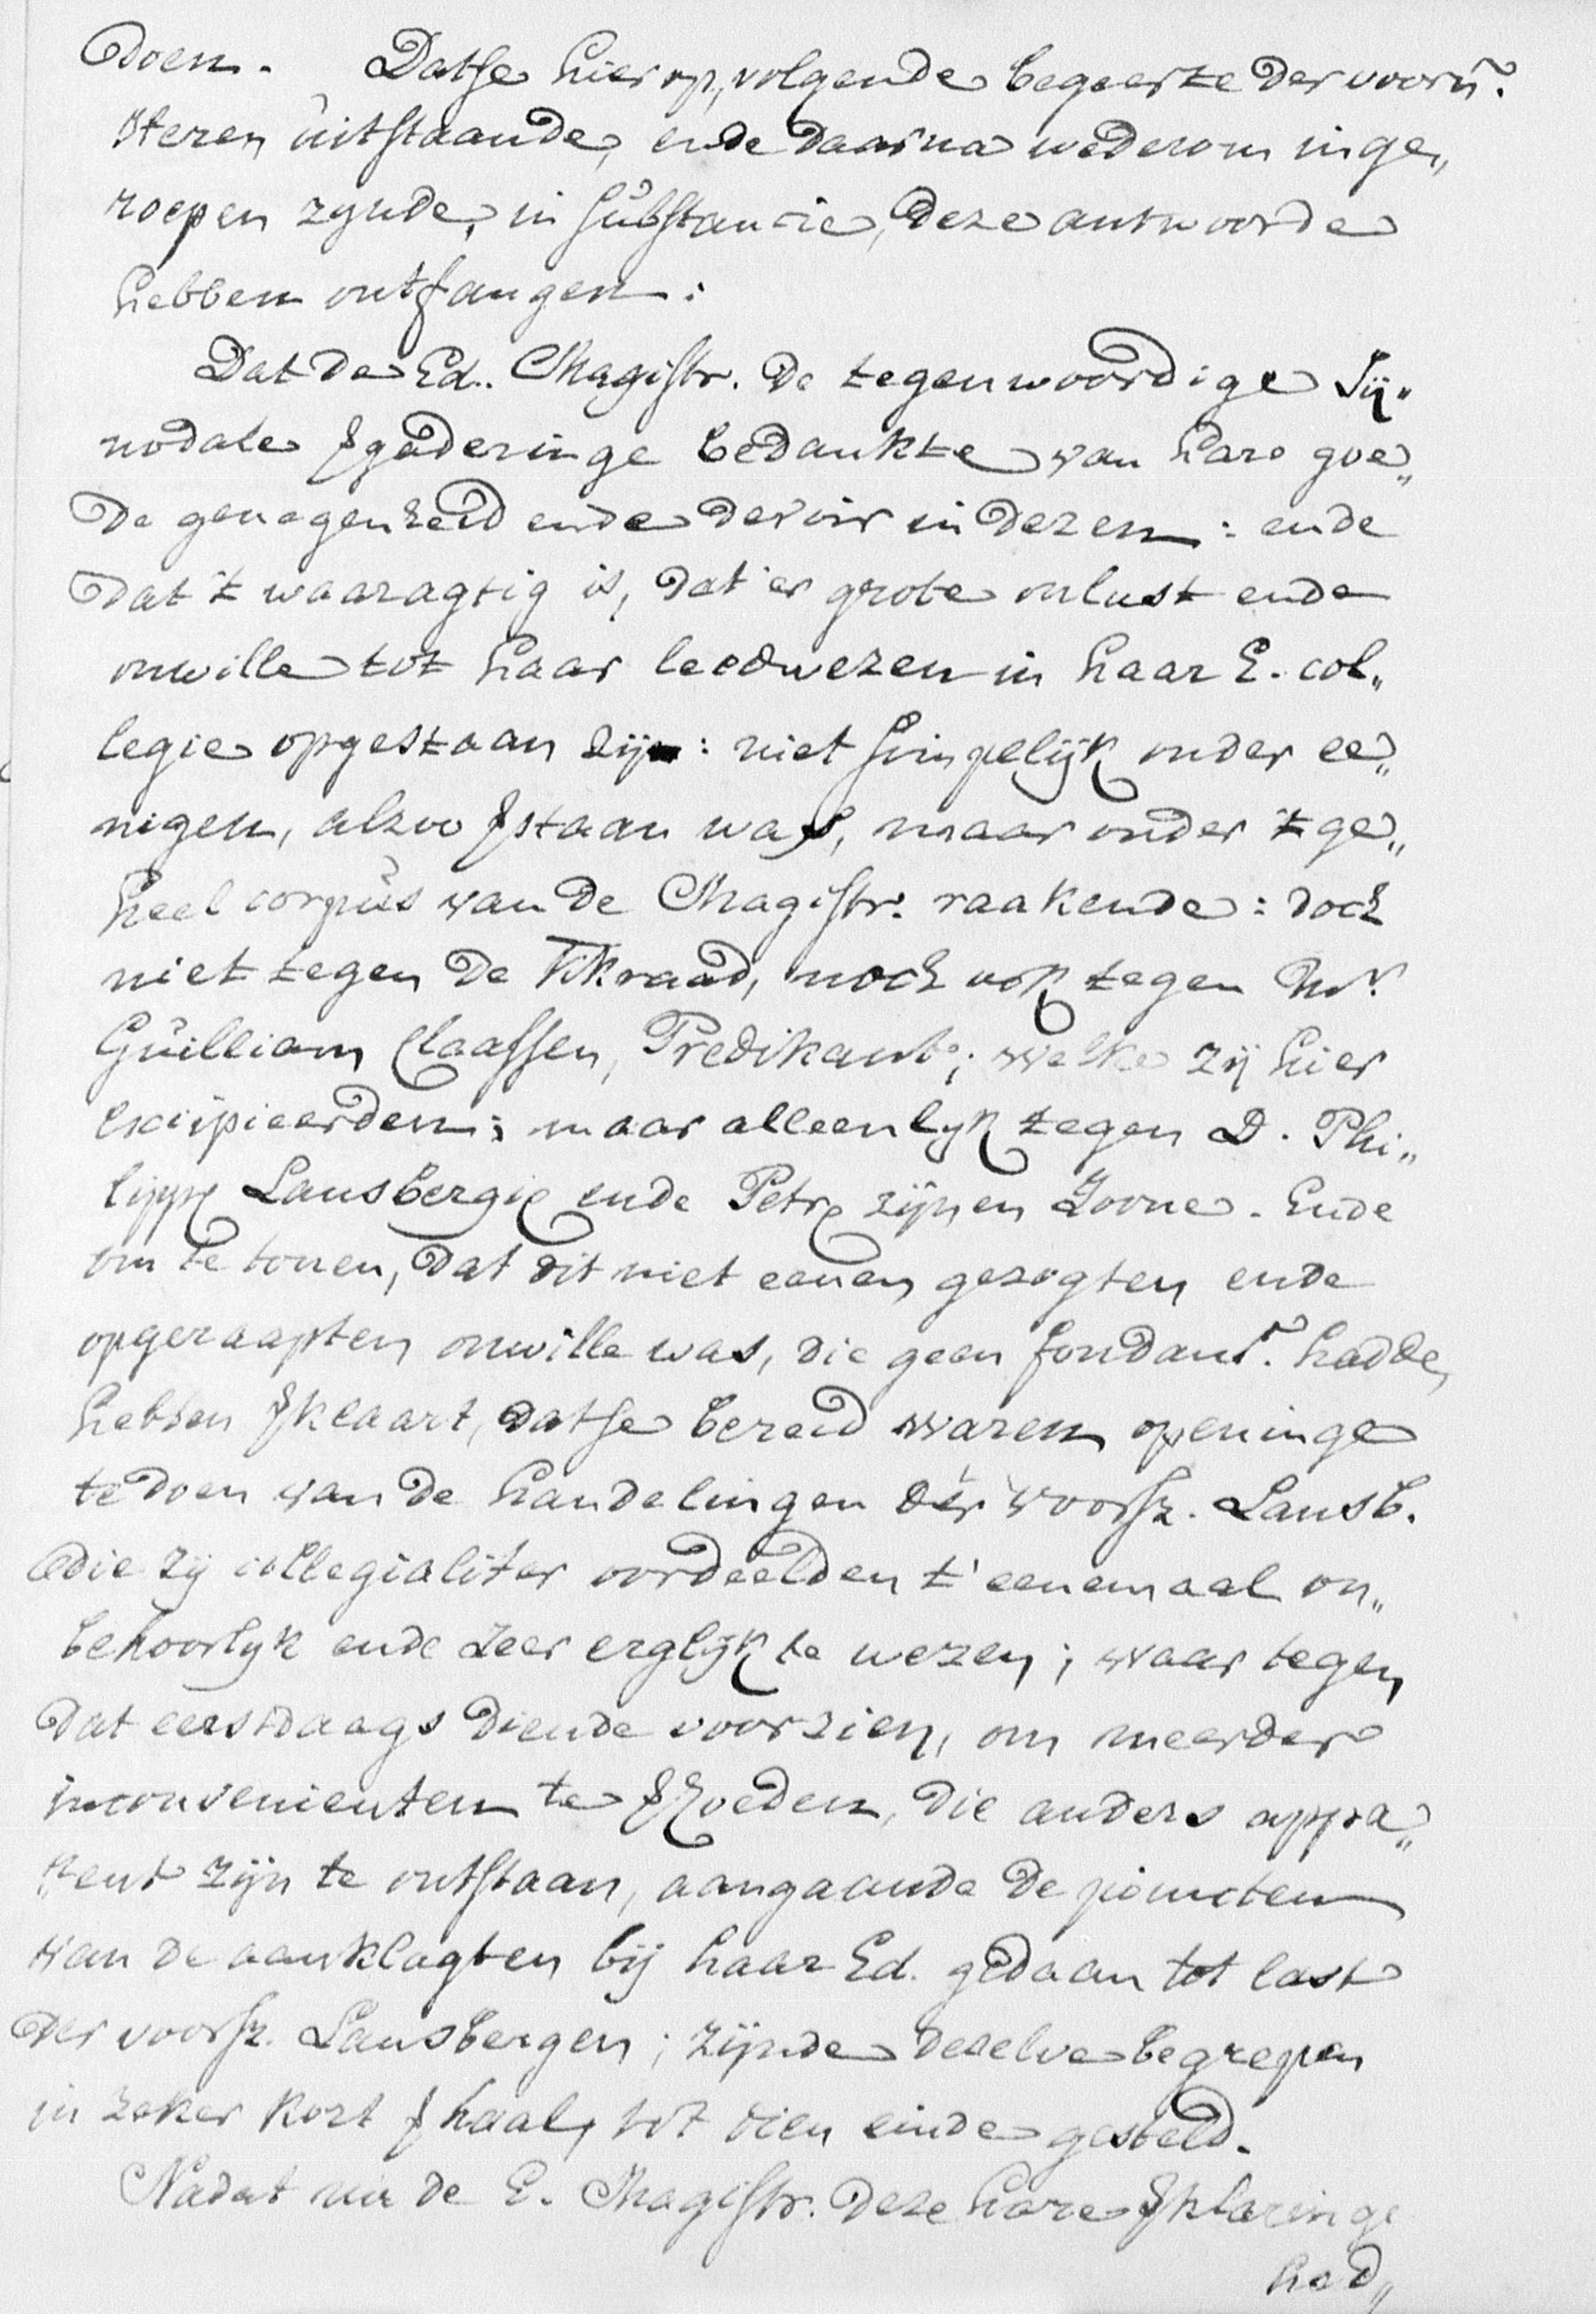 Doen. Datse hierop, volgende begeerte der voorñ.
Heren uitstaande, ende daarna wederom inge„
roepen zynde, in substantie, deze antwoorde
hebben ontfangen:
Dat de Ed. Magistr. de tegenwoordige Sij„
nodale ƒgaderinge bedankte van hare goe„
de genegenheid ende devoir in dezen: ende
dat 't waaragtig is, dat'er grote onlust ende
onwille tot haar leedwezen in haar E. col„
legie opgestaan zijn: niet simpelijk onder ee„
nigen, alzoo ƒstaan was, maar onder 't ge„
heel corpus van de Magistr. raakende: doch
niet tegen de Kkraad, noch ook tegen Mr.
Guilliam Claassen, Predikant; welke zij hier
excipieerden; maar alleenlyk tegen D. Phi„
lippe Lansbergie ende Petre zijnen Zoone. Ende
om te tonen, dat dit niet eenen gezogten ende
opgeraapten onwille was, die geen fondamt. hadde,
hebben ƒklaart, datse bereid waren openinge
te doen van de handelingen der voorsz. Lansb.
die zij collegialiter oordeelden t'eenemaal on„
behoorlyk ende zeer erglijk te wezen; waar tegen
dat eerstdaags diende voorzien, om meerder
inconvenienten te ƒhoeden, die anders appa„
„rent zijn te ontstaan, aangaande de poincten
van de aanklagten bij haar Ed. gedaan tot last
der voorsz. Lansbergen; zijnde dezelve begrepen
in zeker kort ƒhaal, tot dien einde gesteld.
Nadat nu de E. Magistr. deze hare ƒklaringe
had„